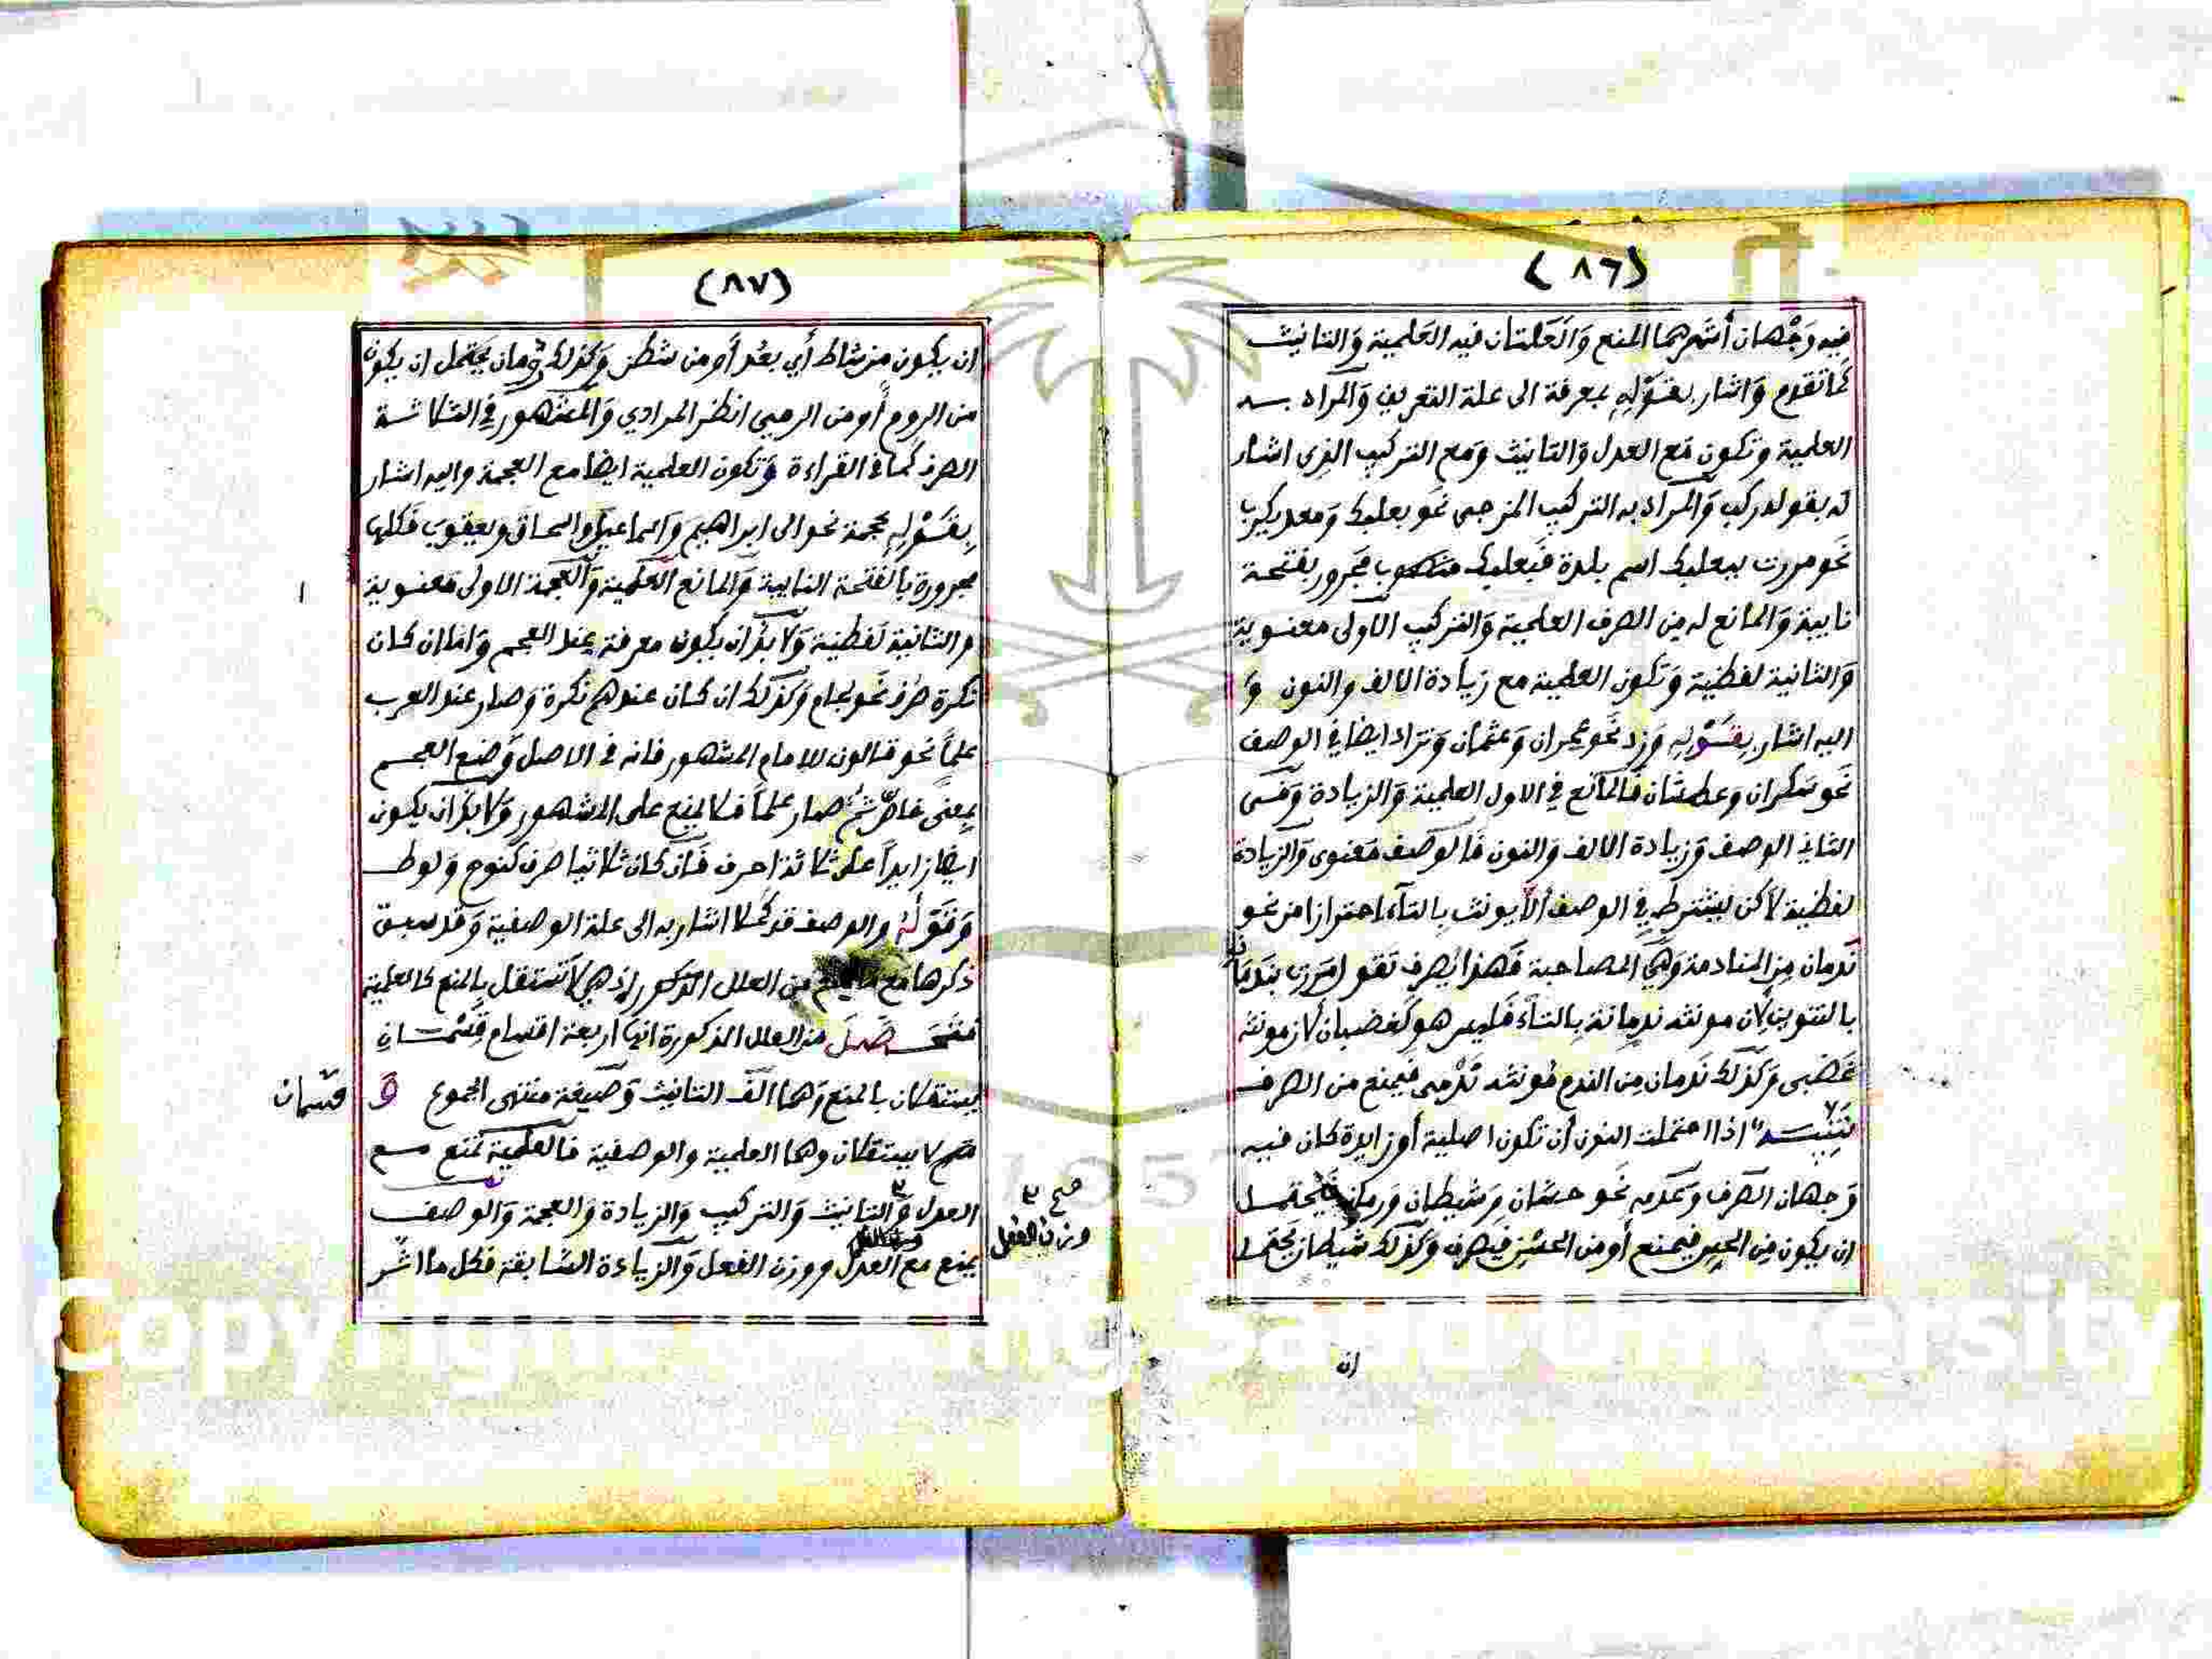 (٨٦)
فيه وَجْهان أشهرهما المنع وَالعَلتان فيه العَلمية وَالتانيث
كَما تقدم وَاشار بقَوْلِهِ بمعرفة الى علة التعريف وَالمراد بـه
العلمية وتكون مَع العدل وَالتانيث وَمع التركيب الذى اشار
له بقوله ركب وَالمراد به التركيب المزجى نحَو بعلبك وَمعديكرب
نَحو مررت ببعلبك اسم بلدة فَبعلبك مجَرور بفتحـة
نايبة وَالمانع له مِن الصرف العلمية وَالتركيب الاولى معنـوية
وَالثانية لفظية وَتكون العلمية مع زيادة الالف والنون وَ
اليه اشار بقَوْلِهِ وَزد نَحو عمران وَعثمان وَتزاد ايضا في الوصف
نَحو سَكران وعطشان فَالمانع في الاول العلمية وَالزيادة وَفــى
الثاني الوصف وَزيادة الالف وَالنون فَالوَصف مَعنوى وَالزيادة
لفظية لاكن يشترط في الوصف ألاّ يونث بِالتآء احترازا من نحو
نَدمان مِن المنادمة وَهي المصاحبة فَهذا يُصرف تقول مَررت بندمَان
بالتنوين لأن مونثه ندمانة بِالتاء فَليس هو كَغضبان لأن مونثه
غَضْبى وَكَذلك نَدمان مِن الندم مُونثه نَدْمى فَيمنع من الصرف
تَنْبِيـــه اذا احتملت النون أن تكون اصلية أو زايدة كان فيه
وَجهان الصَرف وَعَدمه نَحو حسَّان وَشيطان وَرمان فَيحتمـل
ان يكون مِن الحِسِ فيمنع أو من الحسْنِ فيصرف وَكَذلك شيطان يَحتمل
ان
(٨٧)
ان يكون من شاط أي بعُد أو من شطن وَكذلك رُمان يحتمل ان يكون
من الروم أو من الرمي انظر المرادي وَالمَشهور في الثلاثـــة
الصرف كَما في القراءة وَتكون العلمية ايضا مع العجمة واليه اشار
بِقَوْلِهِ عجمة نحو الى ابراهيم وَاسماعيل واسحـاق ويعقوب فَكلها
مجرورة بالفتحة النايبة وَالمانع العَلمية وَالعَجمة الاولى مَعنـوية
والثانية لَفظية وَلا بدَّ ان يكون معرفة عِند العجم وَاما ان كـان
نَكرة صُرف نَحو لجام وَكَذلك ان كـان عندهم نكرة وَصار عند العرب
علماً نحو قالون للامام المشهور فانه في الاصل وَضع العجــم
بِمعنى خاصّ ثمَّ صار علماً فـلا يمنع على المشهور وَلا بدَّ ان يكـون
ايضا زايداً على ثلاثة احرف فَان كان ثلاثيا صُرف كنوح وَلوط
وَقَوْلُهُ والوصف قد كَملا اشار به الى علة الوصفية وَقد سبق
ذكرها مع من العلل المذكور اذ هي لا تَستقل بِالمنع كالعلمية
فَتَحَــصَّـلَ من العلل المذكورة انها اربعة اقسام قِسْمــانِ
يستقلان بالمنع وَهما الف التانيث وَصيغة منتهى الجموع وَ
قسمان
لا يستقلان وهما العلمية والوصفية فالعَلمية تَمنع مــع
العدل وَالتانيث وَالتركيب وَالزيادة وَالعجمة وَالوصف
صح ٣ وزن الفعل
يمنع مع العدل ووزن الفعل وَالزيادة السَّابقة فكل ما اشر